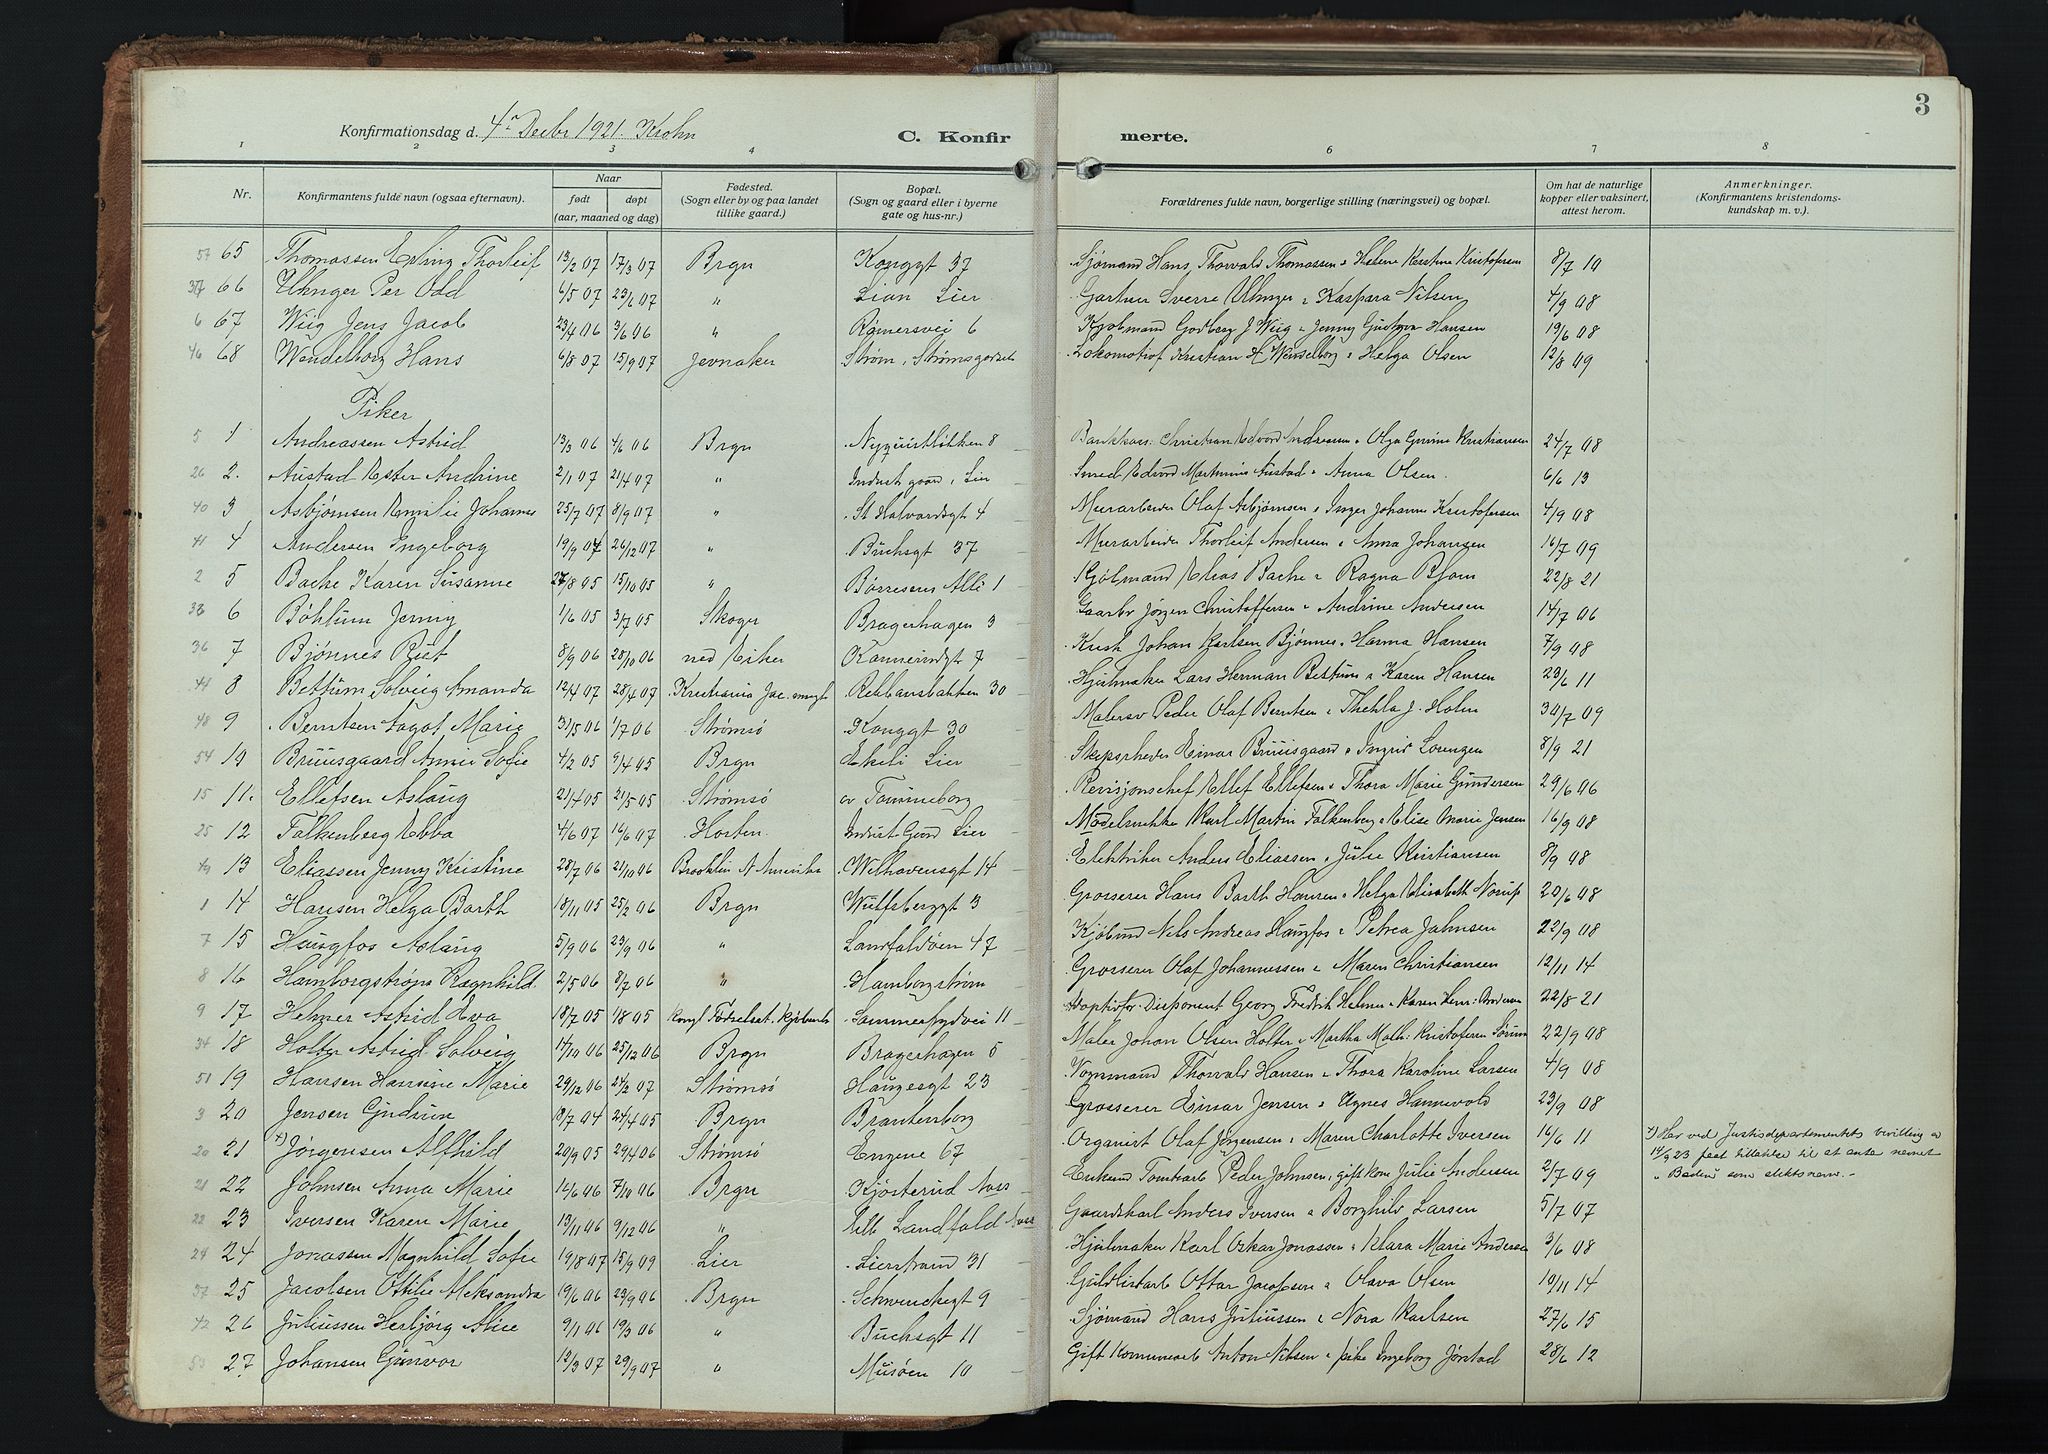 3
Konfirmationsdag d. 4de Decbr 1921. Krohn
C. Konfirmerte.
1 2 3 4 6 7 8
Nr. Konfirmantens fulde navn (ogsaa efternavn). Naar født døpt (aar, maaned og dag) Fødested. (Sogn eller by og paa landet tillike gaard.) Bopæl. (Sogn og gaard eller i byerne gate og hus-nr.) Forældrenes fulde navn, borgerlige stilling (næringsvei) og bopæl. Om hat de naturlige kopper eller vaksinert, attest herom. Anmerkninger. (Konfirmantens kristendomskundskap m. v.).
57 65 Thomassen Erling Thorleif 13/2 07 17/3 07 Brgn Konggt 37 Sjømand Hans Thorvald Thomassen o Helene Kirstine Kristofersen 8/7 10
66 Per Odd 6/5 07 " Lian Lier Gartner Sverre o Kaspara Nilsen 4/9 08
6 67 Wiig Jens Jacob 23/4 06 3/6 06 " Rømersvei 6 Kjøbmand Godberg J Wiig o Jenny Gustava Hansen 19/6 08
46 68 Wendelborg Hans 6/8 07 15/9 07 Jevnaker Strøm, Strømsgodset Lokomotivf Kristian H Wendelborg o Helga Olsen 13/8 09
Piker
5 1 Andreassen Astrid 13/3 06 4/6 06 Brgn Nyquistløkken 8 Christian Edvard Andreassen o Olga Kristiansen 24/7 08
26 2. Austad Ester Andrine 2/1 07 21/4 07 " Industrigaard, Lier Smed Edvard Martinius Austad o Anna Olsen. 6/6 13
40 3 Asbjørnsen Emilie Johanne 25/7 07 8/9 07 " St Halvardsgt 4 Murarbeider Olaf Asbjørnsen o Inger Johanne Kristofersen 4/9 08
41 4 Andersen Ingeborg 19/9 07 26/12 07 " Buchsgt 37 Murarbeider Thorleif Andersen o Anna Johansen 16/7 09
2 5 Bache Karen Susanne 27/8 05 15/10 05 " Børresens Allé 1 Kjøbmand Elias Bache o Ragna Bjom 22/8 21
33 6 Bøhlum Jenny 1/6 05 3/7 05 Skoger Bragerhagen 3 Gaarbr Jørgen Christoffersen o Andrine Andersen 14/7 06
36 7 Bjønnes Rut 8/9 06 28/10 06 ned Eiker 7 Kusk Johan Karlsen Bjønnes o Hanna Hansen 7/9 08
44 8 Bettum Solveig Amanda 12/4 07 28/4 07 Kristiania Jac. Rekbansbakken 30 Hjulmaker Lars Herman Bettum o Karen Hansen 23/6 11
48 9 Berntsen Aagot Marie 31/5 06 1/7 06 Strømsø Konggt 30 Malersv Peder Olaf Berntsen o Thekla J. Holm 30/7 09
54 10 Bruusgaard Annie Sofie 4/2 05 9/4 05 Brgn Ekeli Lier Skipsrheder Einar Bruusgaard o Ingrid Lorengen 8/9 21
15 11. Ellefsen Aslaug 21/4 05 21/5 05 Strømsø øv Tomineborg Revisjonschef Ellef Ellefsen o Thora Marie Gundersen 29/6 06
25 12 Falkenberg Ebba 4/6 07 16/6 07 Horten. Indust Gaard Lier Modelsnekker Karl Martin Falkenberg o Elise Marie Jensen 16/9 08
49 13 Eliassen Jenny Kristine 28/7 06 21/10 06 Brooklin N Amerika Welhavensgt 14 Elektriker Anders Eliassen o Julie Kristiansen 8/9 08
1 14 Hansen Helga Barth 18/11 05 25/2 06 Brgn Wulfsberggt 3 Grosserer Hans Barth Hansen o Helga Elisabeth Norup 20/6 08
7 15 Haugfos Aslaug 5/9 06 23/9 06 " Landfaldøen 47 Kjøbmd Nils Andreas Haugfos o Petrea Jahnsen 22/9 08
8 16 Hamborgstrøm Ragnhild 2/5 06 8/7 06 " Hamborgstrøm Grosserer Olaf Johannessen o Maren Christiansen 12/11 14
9 17 Helmer Astrid Eva 18/7 05 18 05 kongl Fødselsst. Kjøbenh Sommerfrydvei 11 Adoptivfor Disponent Georg Fredrik Helmer o Karen Henr: Andersen 22/8 21
34 18 Holter Astrid Solveig 17/10 06 25/12 06 Brgn Bragerhagen 5 Maler Johan Olsen Holter o Martha Math: Kristofersen Sørum 22/9 08
51 19 Hansen Hansine Marie 29/12 06 24/2 07 Strømsø Haugesgt 23 Vognmand Thorvald Hansen o Thora Karoline Larsen 4/9 08
3 20 Jensen Gudrun 13/7 04 24/4 05 Brgn Brantenborg Grosserer Einar Jensen o Agnes Hannevold 23/9 08
20 21 x) Jørgensen Alfhild 20/9 05 29/4 06 Strømsø Engene 67 Organist Olaf Jørgensen o Maren Charlotte Iversen 16/6 11 x) Har ved Justisdepartementets bevilling av
14/9 23 faat tilladelse til at anta navnet
21 22 Johnsen Anna Marie 16/6 06 7/10 06 Brgn Kjøsterud Aass Enkemd Tomtearb Peder Johnsen, gift kone Julie Andersen 2/7 09 " Baden" som slektsnavn. -
22 23 Iversen Karen Marie 13/11 06 9/12 06 " Lille Landfald Aass Gaardskarl Anders Iversen o Borghild Larsen 5/7 07
24 24 Jonassen Magnhild Sofie 19/8 07 15/9 09 Lier Lierstrand 31 Hjulmaker Karl Oskar Jonassen o Klara Marie Andersen 3/6 08
37 25 Jacobsen Ottilie Aleksandra 19/6 06 23/9 06 Brgn Schwenckegt 9 Guldlistarb Ottar Jacobsen o Olava Olsen 10/11 14
42 26 Juliussen Herbjørg Alice 9/1 06 19/3 06 " Buchsgt 11 Sjømand Hans Juliussen o Nora Karlsen 27/6 15
53 27 Johansen Gunvor 12/3 07 29/9 07 " Musøen 10 Gift Kommunearb Anton Nilsen o pike Ingeborg Jørstad 28/6 12